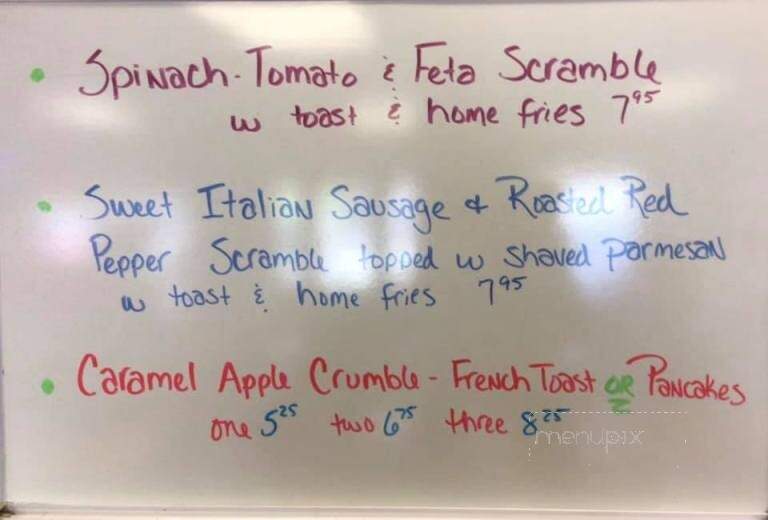 • Spinach - Tomato & Feta Scramble
w toast & home fries 7⁹⁵
• Sweet Italian Sausage & Roasted Red
Pepper Scramble topped w shaved parmesan
w toast & home fries 7⁹⁵
• Caramel Apple Crumble - French Toast OR Pancakes
one 5²⁵ two 6⁷⁵ three 8²⁵
menupix